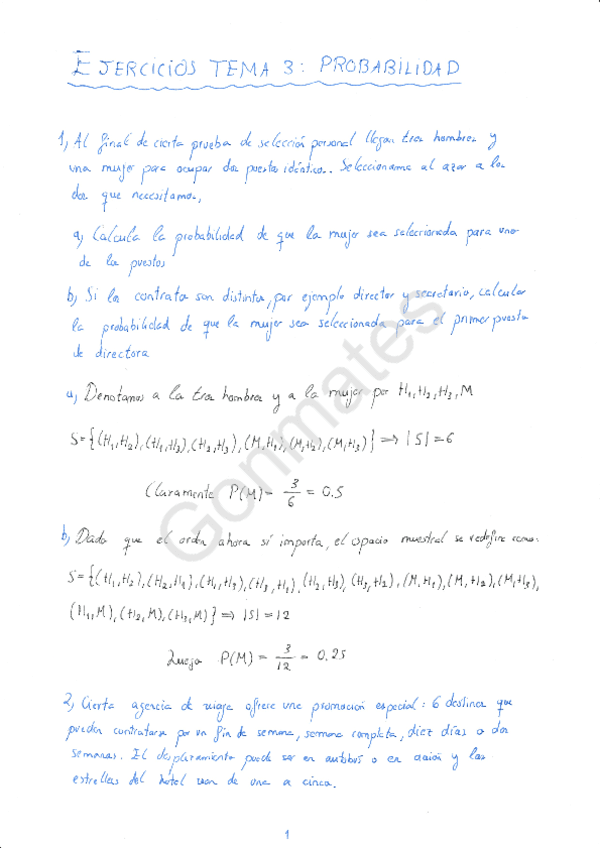 EJERCICIOS TEMA 3: PROBABILIDAD
1) Al final de cierta prueba de selección personal llegan tres hombres y
una mujer para ocupar dos puestos idénticos. Seleccionamos al azar a los
dos que necesitamos,
a) Calcula la probabilidad de que la mujer sea seleccionada para uno
de los puestos
b) Si los contratos son distintos, por ejemplo director y secretario, calcular
la probabilidad de que la mujer sea seleccionada para el primer puesto
de directora
a) Denotamos a los tres hombres y a la mujer por H₁, H₂, H₃, M
S = {(H₁,H₂), (H₁,H₃), (H₂,H₃), (M,H₁), (M,H₂), (M,H₃)} ⟹ |S| = 6
Claramente P(M) = 3/6 = 0.5
b) Dado que el orden ahora sí importa, el espacio muestral se redefine como:
S = {(H₁,H₂), (H₂,H₁), (H₁,H₃), (H₃,H₁), (H₂,H₃), (H₃,H₂), (M,H₁), (M,H₂), (M,H₃),
(H₁,M), (H₂,M), (H₃,M)} ⟹ |S| = 12
Luego P(M) = 3/12 = 0.25
2) Cierta agencia de viajes ofrece una promoción especial: 6 destinos que
pueden contratarse por un fin de semana, semana completa, diez días o dos
semanas. El desplazamiento puede ser en autobús o en avión y las
estrellas del hotel van de una a cinco.
1
Gonmates